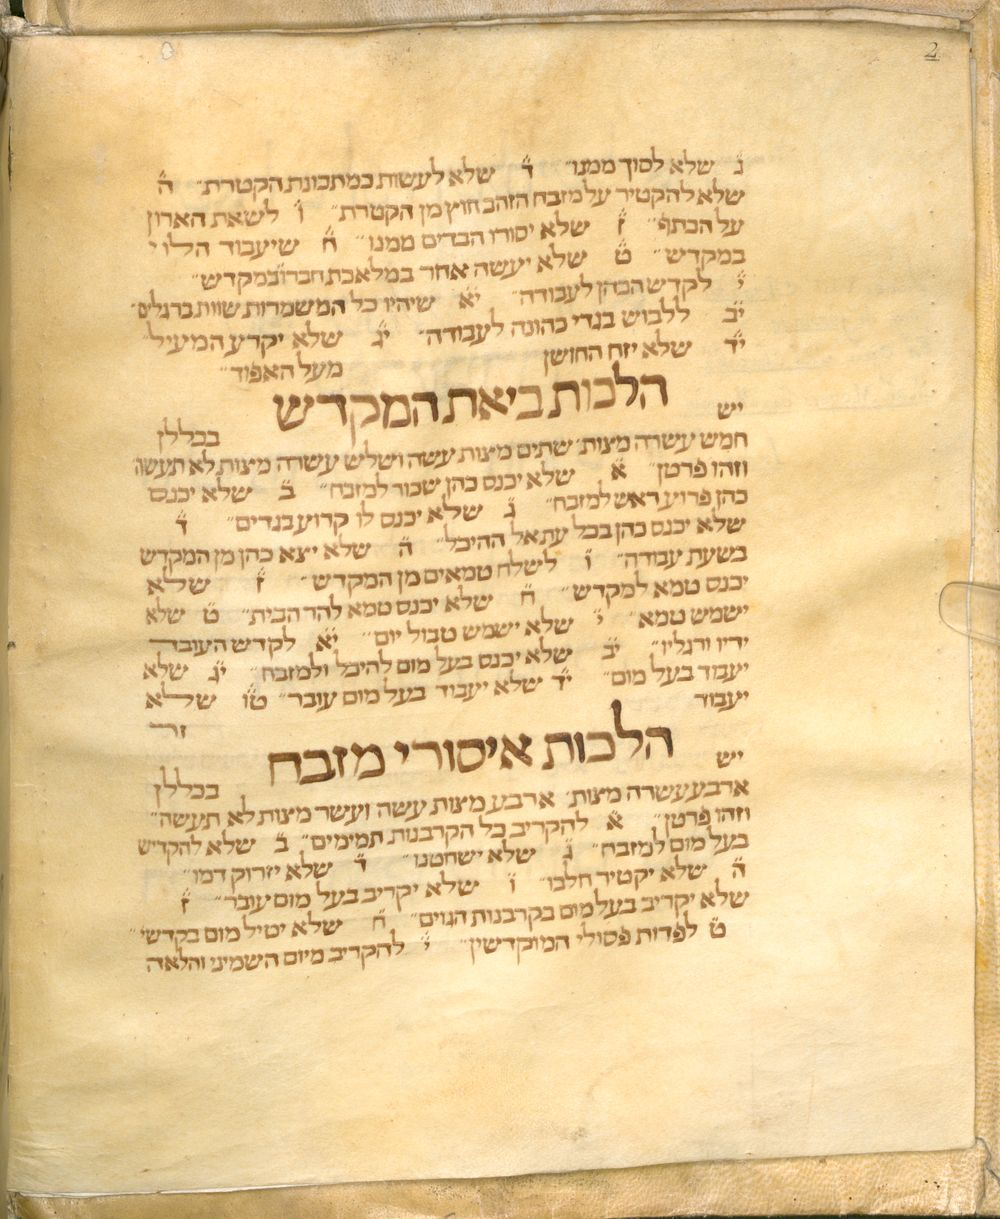 2
ג שלא לסוך ממנו״ ד שלא לעשות במתכונת הקטרת״ ה
שלא להקטיר על מזבח הזהב חוץ מן הקטרת״ ו לשאת הארון
על הכתף״ ז שלא יסורו הבדים ממנו״ ח שיעבוד הלוי
במקדש״ ט שלא יעשה אחר במלאכת חברו במקדש״
י לקדש הכהן לעבודה״ יא שיהיו כל המשמרות שוות ברגלים״
יב ללבוש בגדי כהונה לעבודה״ יג שלא יקרע המעיל״
יד שלא יזח החושן מעל האפוד״
הלכות ביאת המקדש
יש בכללן
חמש עשרה מצות׳ שתים מצות עשה ושלש עשרה מצות לא תעשה
וזהו פרטן״ א שלא יכנס כהן שכור למזבח״ ב שלא יכנס
כהן פרוע ראש למזבח״ ג שלא יכנס לו קרוע בגדים״ ד
שלא יכנס כהן בכל עת אל ההיכל״ ה שלא יצא כהן מן המקדש
בשעת עבודה״ ו לשלח טמאים מן המקדש״ ז שלא
יכנס טמא למקדש״ ח שלא יכנס טמא להר הבית״ ט שלא
ישמש טמא״ י שלא ישמש טבול יום״ יא לקדש העובד
ידיו ורגליו״ יב שלא יכנס בעל מום להיכל ולמזבח״ יג שלא
יעבוד בעל מום״ יד שלא יעבוד בעל מום עובר״ טו שלא
יעבוד זר
הלכות איסורי מזבח
יש בכללן
ארבע עשרה מצות׳ ארבע מצות עשה ועשר מצות לא תעשה״
וזהו פרטן״ א להקריב כל הקרבנות תמימים״ ב שלא להקדיש
בעל מום למזבח״ ג שלא ישחטנו״ ד שלא יזרוק דמו״
ה שלא יקטיר חלבו״ ו שלא יקריב בעל מום עובר״ ז
שלא יקריב בעל מום בקרבנות הגוים״ ח שלא יטיל מום בקדשי״
ט לפדות פסולי המוקדשין״ י להקריב מיום השמיני והלאה